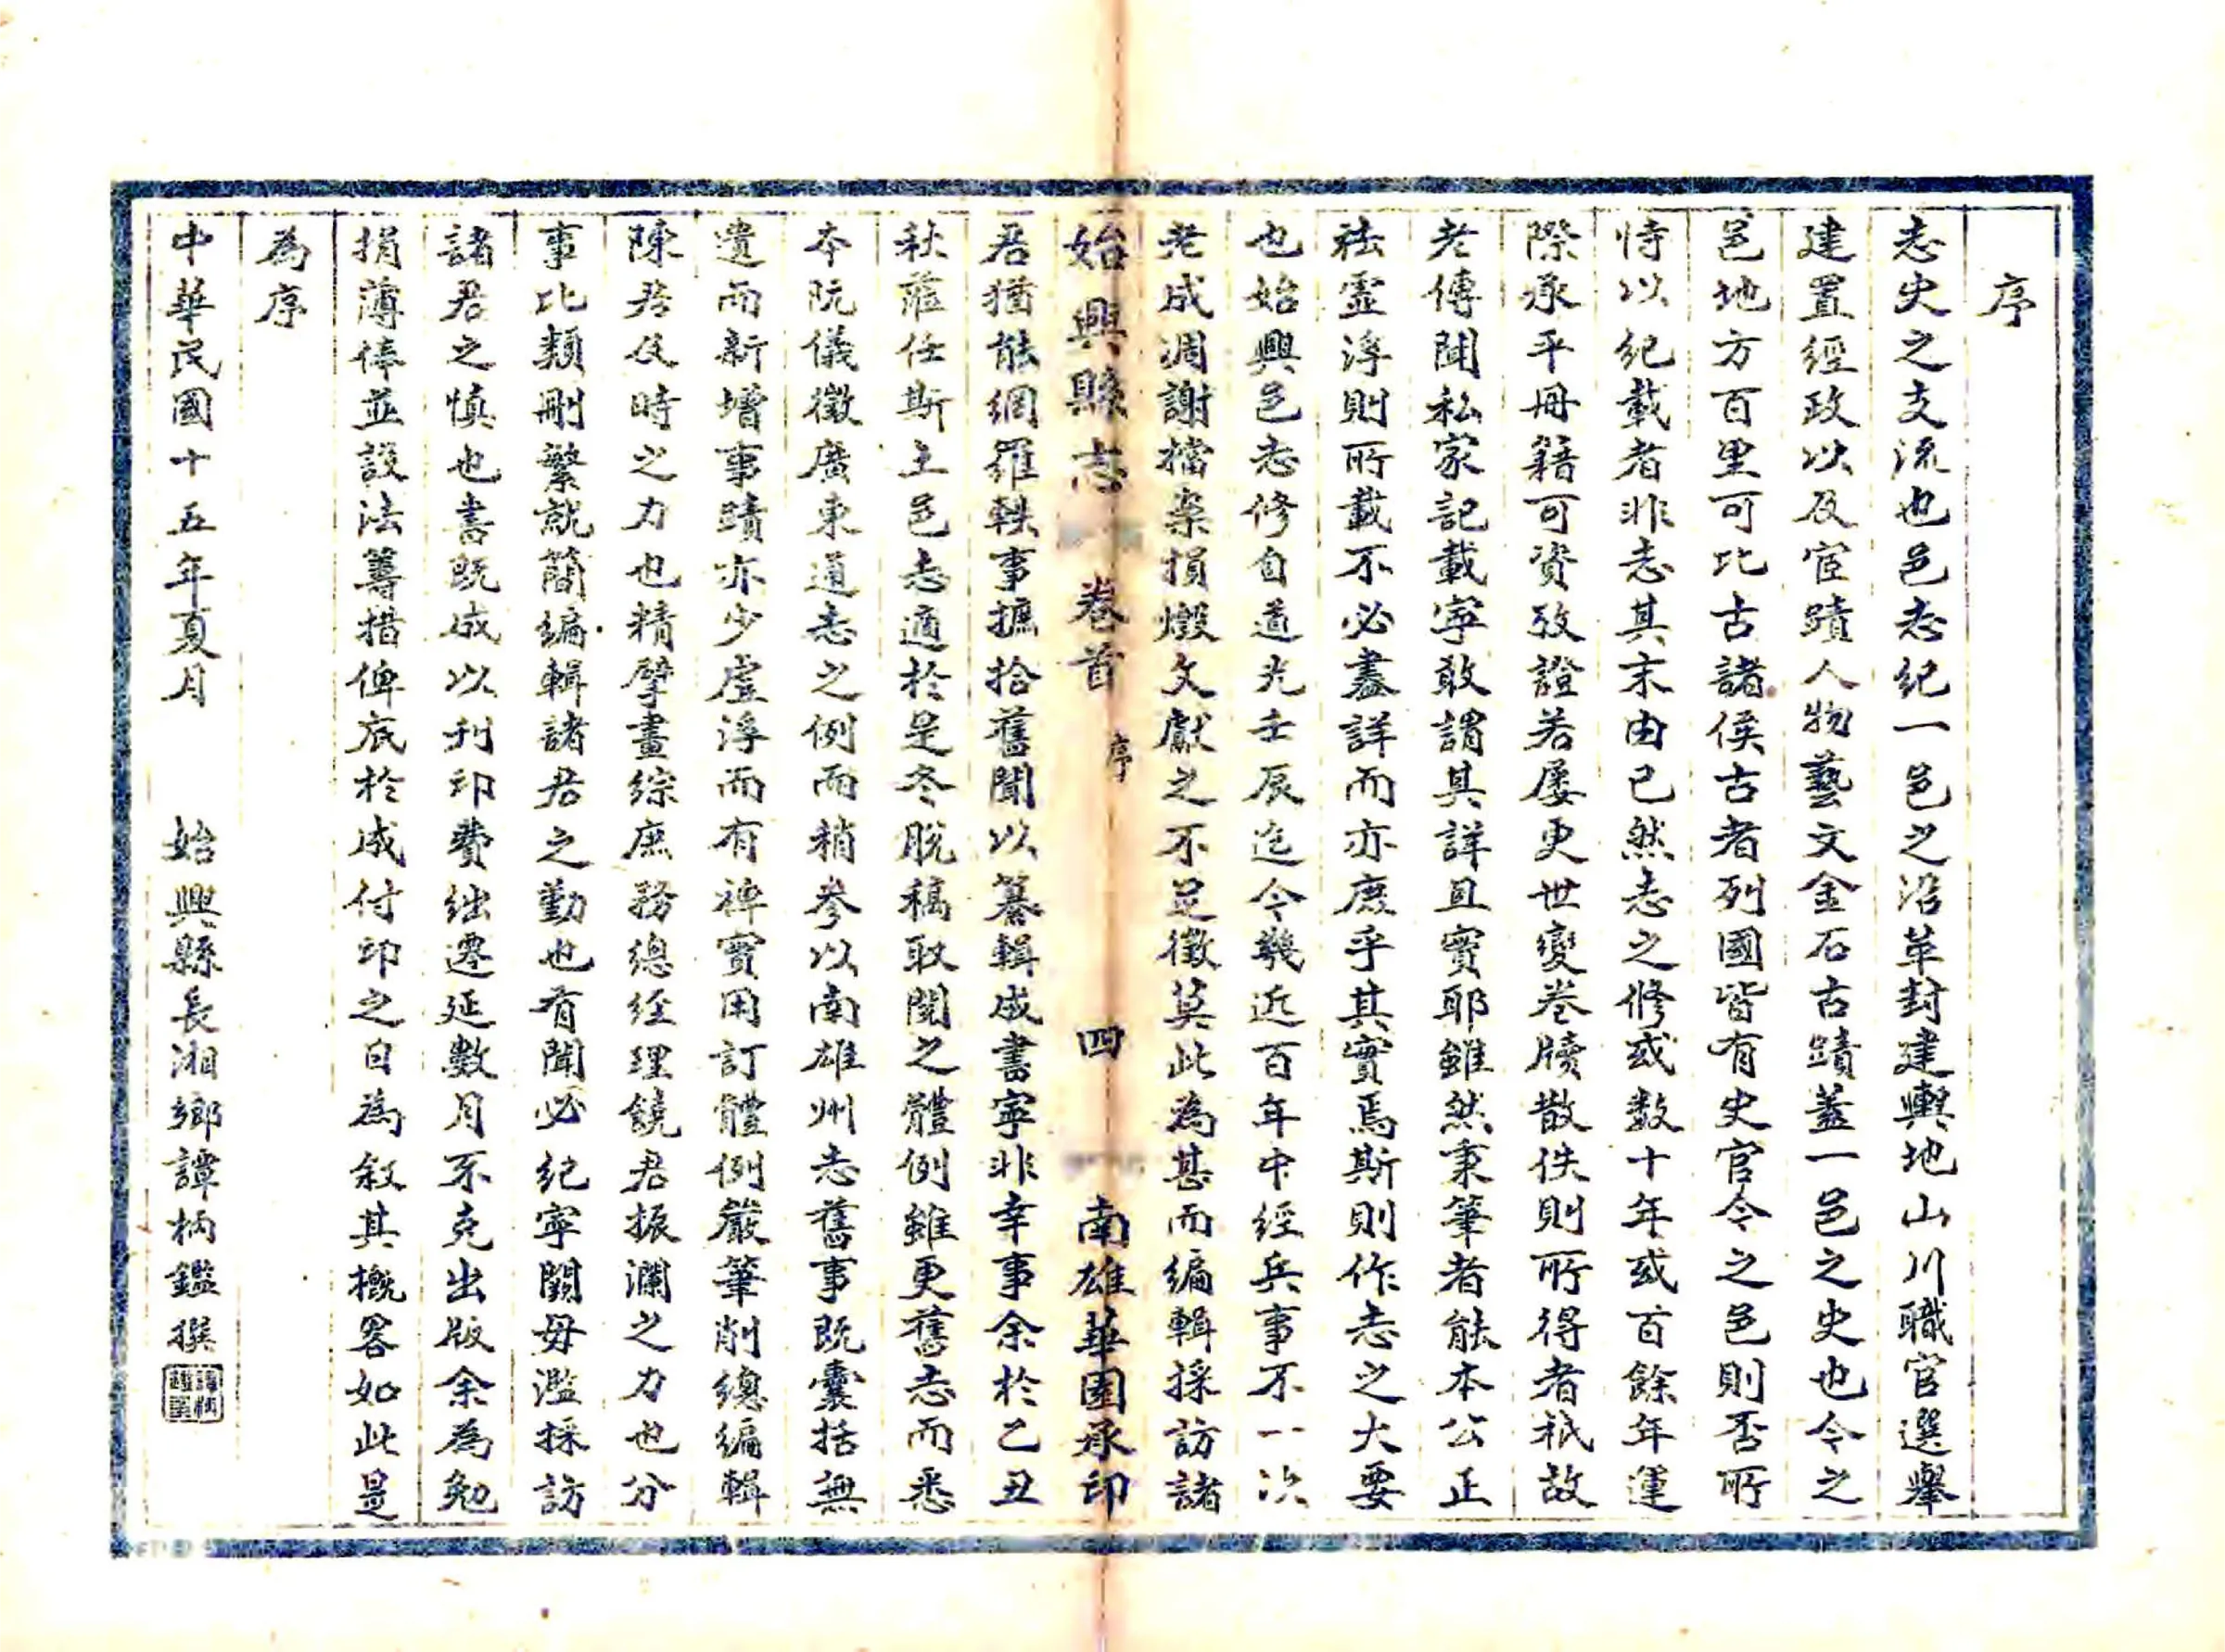 序
志史之支流也邑志紀一邑之沿革封建輿地山川職官選舉
建置經政以及宦蹟人物藝文金石古蹟蓋一邑之史也令之
邑地方百里可比古諸侯古者列國皆有史官令之邑則否所
恃以紀載者非志其末由已然志之修或数十年或百餘年運
際承平冊籍可資攷證若屡更世變卷牘散佚則所得者秖故
老傳聞私家記載寧敢謂其詳且實耶雖然秉筆者能本公正
袪虛浮則所載不必盡詳而亦庶乎其實焉斯則作志之大要
也始興邑志修自道光壬辰迄今幾近百年中經兵事不一次
老成凋謝檔案損燬文獻之不足徵莫此為甚而編輯採訪諸
始興縣志 卷首 序 四 南雄華園承印
君猶能網羅軼事摭拾舊聞以纂輯成書寧非幸事余於乙丑
秋蒞任斯土邑志適於是冬脫稿取閱之體例雖更舊志而悉
本阮儀徵廣東道志之例而稍參以南雄州志舊事既囊括無
遺而新增事蹟亦少虛浮而有裨實用訂體例嚴筆削總編輯
陳君及時之力也精擘畫綜庶務總經理饒君振瀾之力也分
事比類刪繁就簡編輯諸君之勤也有聞必紀寧闕毋濫採訪
諸君之慎也書既成以刋印費绌遷延數月不克出版余為勉
捐薄俸並設法籌措俾底於成付印之日為敘其概畧如此是
為序
中華民國十五年夏月 始興縣長湘鄉譚柄鑑撰